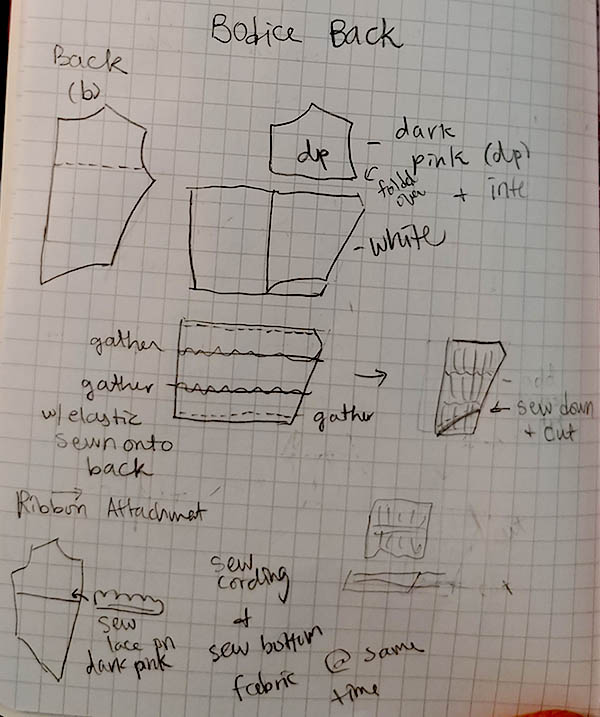 Bodice Back
Back
(b)
dp
- dark
pink (dp)
+ inte
folded
over
- white
gather
gather
w/ elastic
sewn onto
back
gather
← sew down
+ cut
Ribbon Attachmat
sew
lace on
dark pink
sew
cording
+
sew bottom
fabric
@ same
time